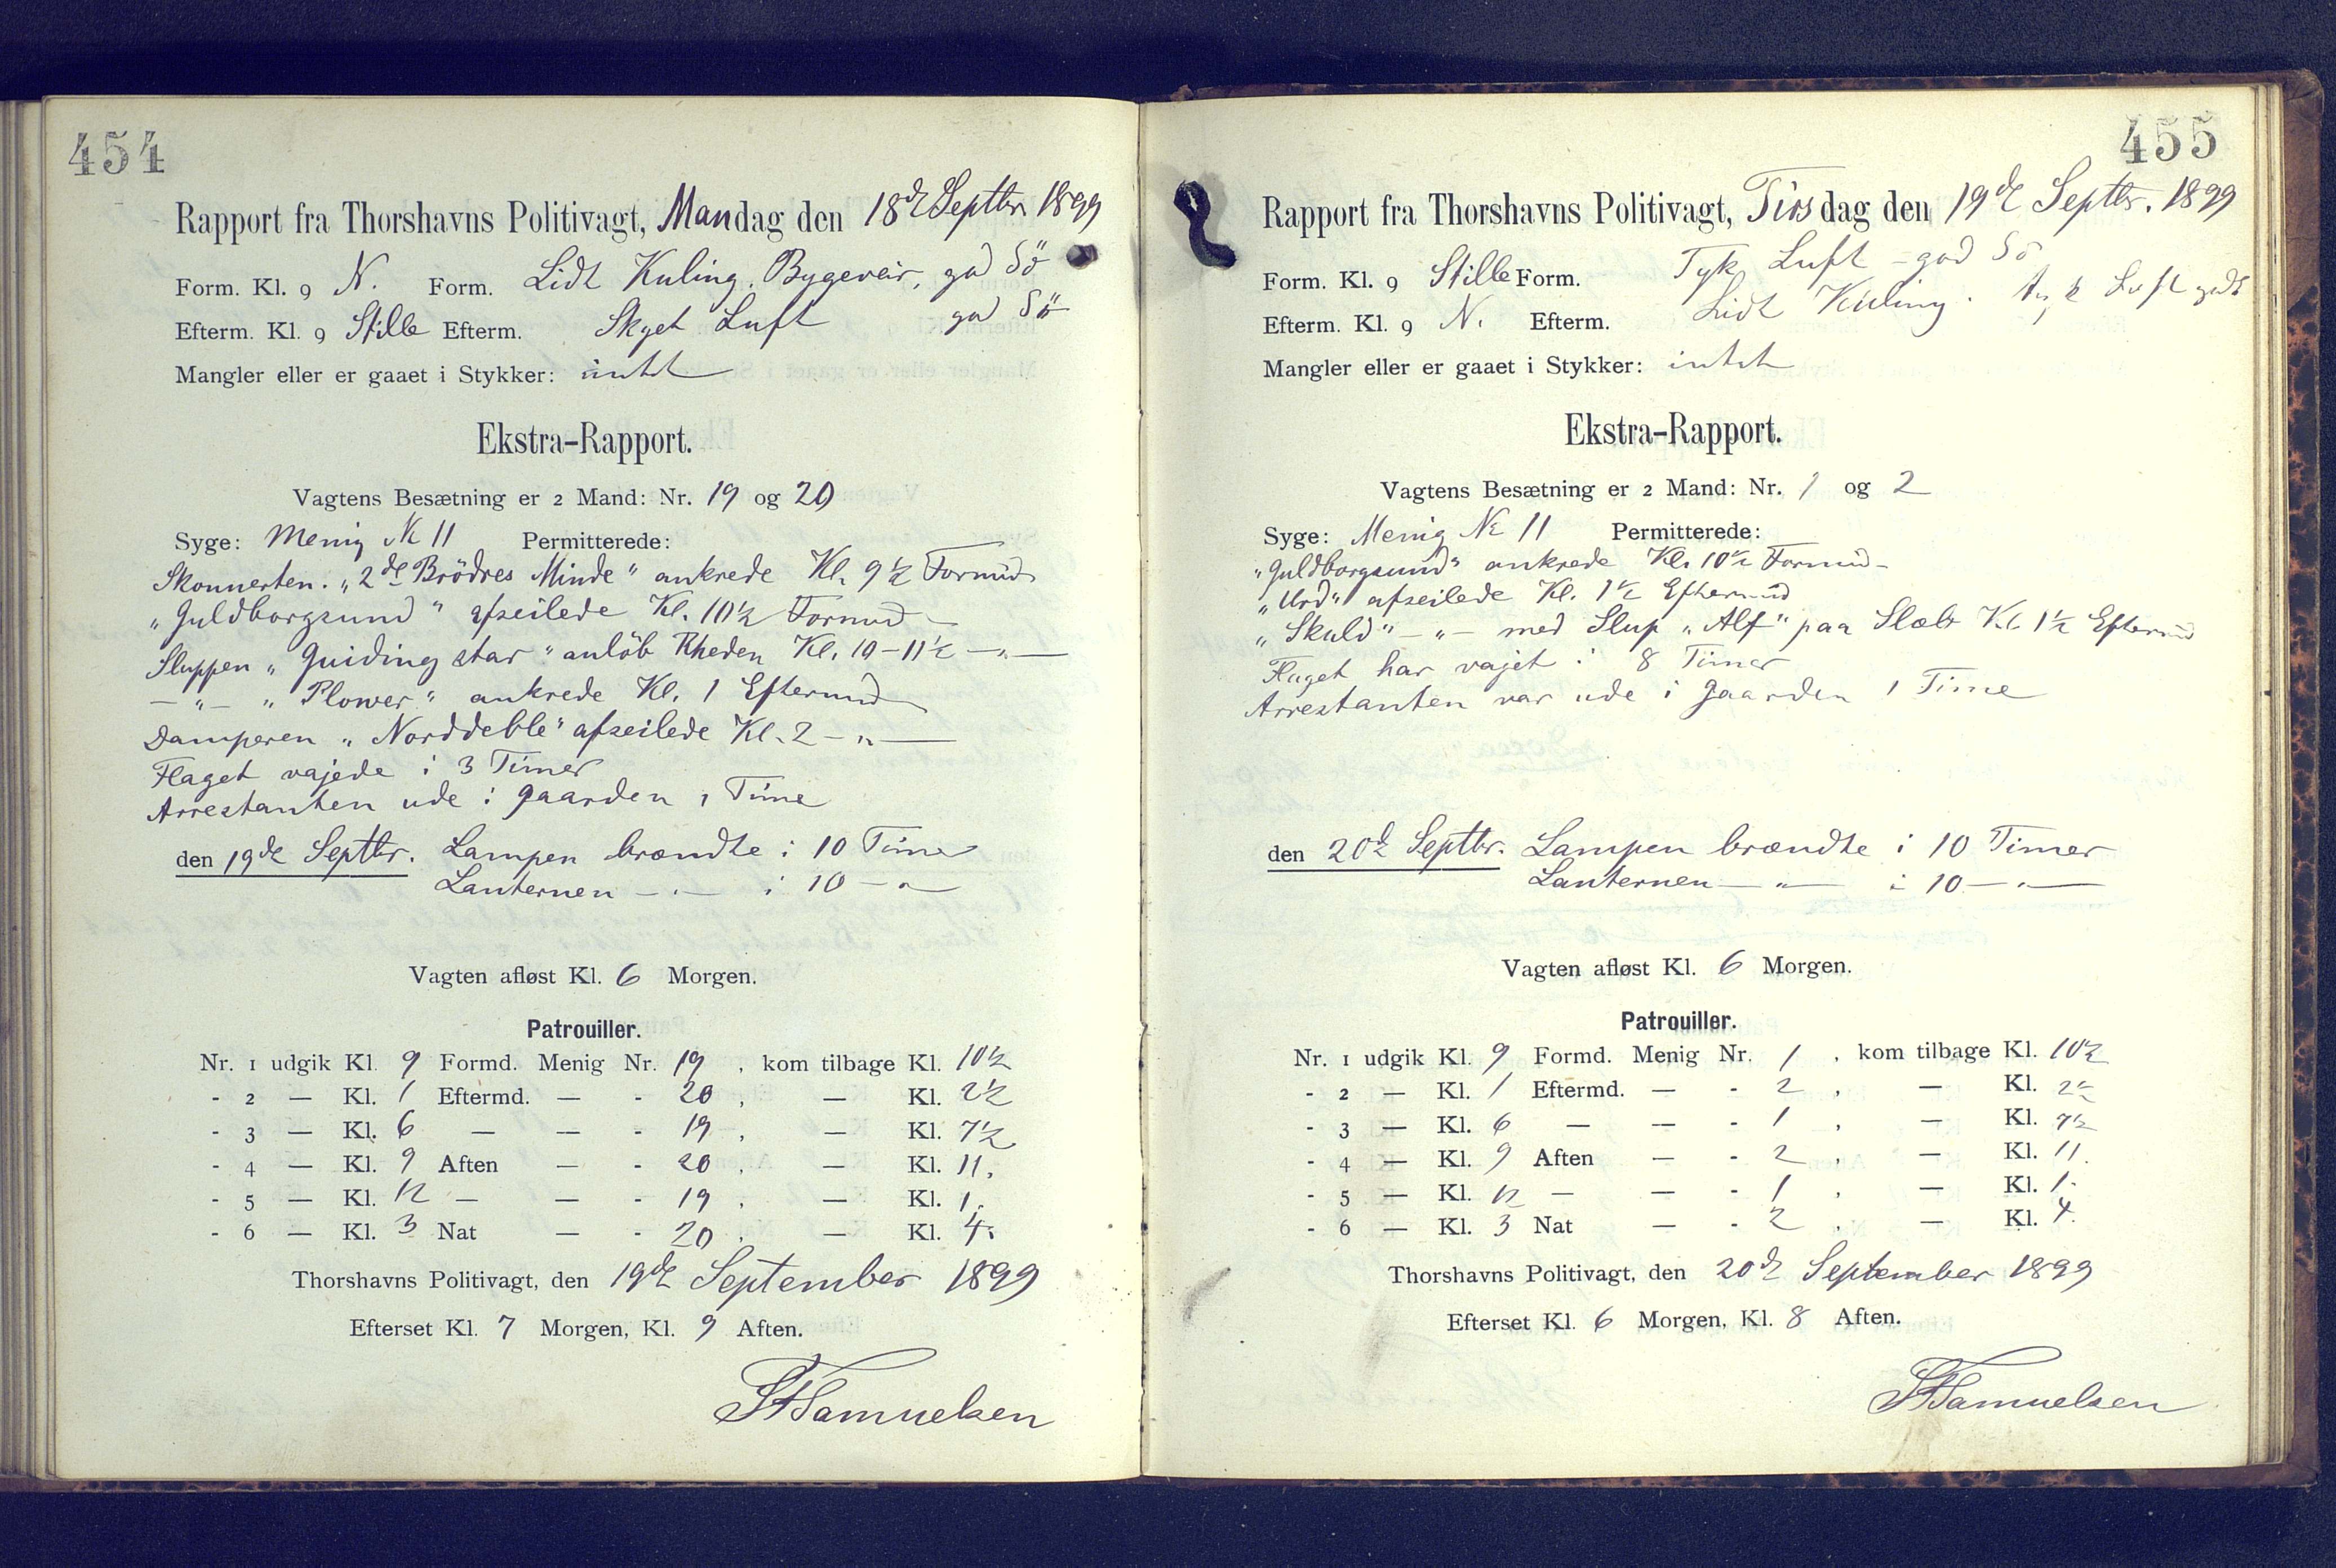 454
Rapport fra Thorshavns Politivagt, Mandag den 18de Septbr. 1899
Form. Kl. 9 N. Form. Lidt Kuling. Bygeveir, god Sö
Efterm. Kl. 9 Stille Efterm. Skyet Luft god Sö
Mangler eller er gaaet i Stykker: intet
Ekstra-Rapport.
Vagtens Besætning er 2 Mand: Nr. 19 og 20
Syge: Menig № 11 Permitterede:
Skonnerten. „2de Brödres Minde" ankrede Kl. 9½ Formid
„Guldborgsund" afseilede Kl. 10½ Formid —
Sluppen „Guiding star" anlöb Rheden Kl. 10-11½ —"—
—"— „Plower" ankrede Kl. 1 Eftermid
Damperen „Norddeble" afseilede Kl. 2 —"—
Flaget vajede i 3 Timer
Arrestanten ude i Gaarden 1 Time
den 19de Septbr. Lampen brændte i 10 Timer
Lanternen —"— i 10 —"—
Vagten afløst Kl. 6 Morgen.
Patrouiller.
Nr. 1 udgik Kl. 9 Formd. Menig Nr. 19, kom tilbage Kl. 10½
- 2 — Kl. 1 Eftermd. — - 20, — Kl. 2½
- 3 — Kl. 6 — — - 19, — Kl. 7½
- 4 — Kl. 9 Aften — - 20, — Kl. 11.
- 5 — Kl. 12 — — - 19, — Kl. 1.
- 6 — Kl. 3 Nat — - 20, — Kl. 4.
Thorshavns Politivagt, den 19de September 1899
Efterset Kl. 7 Morgen, Kl. 9 Aften.
Samuelsen
455
Rapport fra Thorshavns Politivagt, Tirsdag den 19de Septbr. 1899
Form. Kl. 9 Stille Form. Tyk Luft - god Sö
Efterm. Kl. 9 N. Efterm. Lidt Kuling. Tyk Luft god S
Mangler eller er gaaet i Stykker: intet
Ekstra-Rapport.
Vagtens Besætning er 2 Mand: Nr. 1 og 2
Syge: Menig № 11 Permitterede:
„Guldborgsund" ankrede Kl. 10½ Formid -
„Urd" afseilede Kl. 1½ Eftermid
„Skuld" —"— med Slup „Alf" paa Slæb Kl. 1½ Eftermid
Flaget har vajet i 8 Timer
Arrestanten var ude i Gaarden 1 Time
den 20de Septbr. Lampen brændte i 10 Timer
Lanternen —"— i 10 —"—
Vagten afløst Kl. 6 Morgen.
Patrouiller.
Nr. 1 udgik Kl. 9 Formd. Menig Nr. 1, kom tilbage Kl. 10½
- 2 — Kl. 1 Eftermd. — - 2, — Kl. 2½
- 3 — Kl. 6 — — - 1, — Kl. 7½
- 4 — Kl. 9 Aften — - 2, — Kl. 11.
- 5 — Kl. 12 — — - 1, — Kl. 1.
- 6 — Kl. 3 Nat — - 2, — Kl. 4.
Thorshavns Politivagt, den 20de September 1899
Efterset Kl. 6 Morgen, Kl. 8 Aften.
Samuelsen